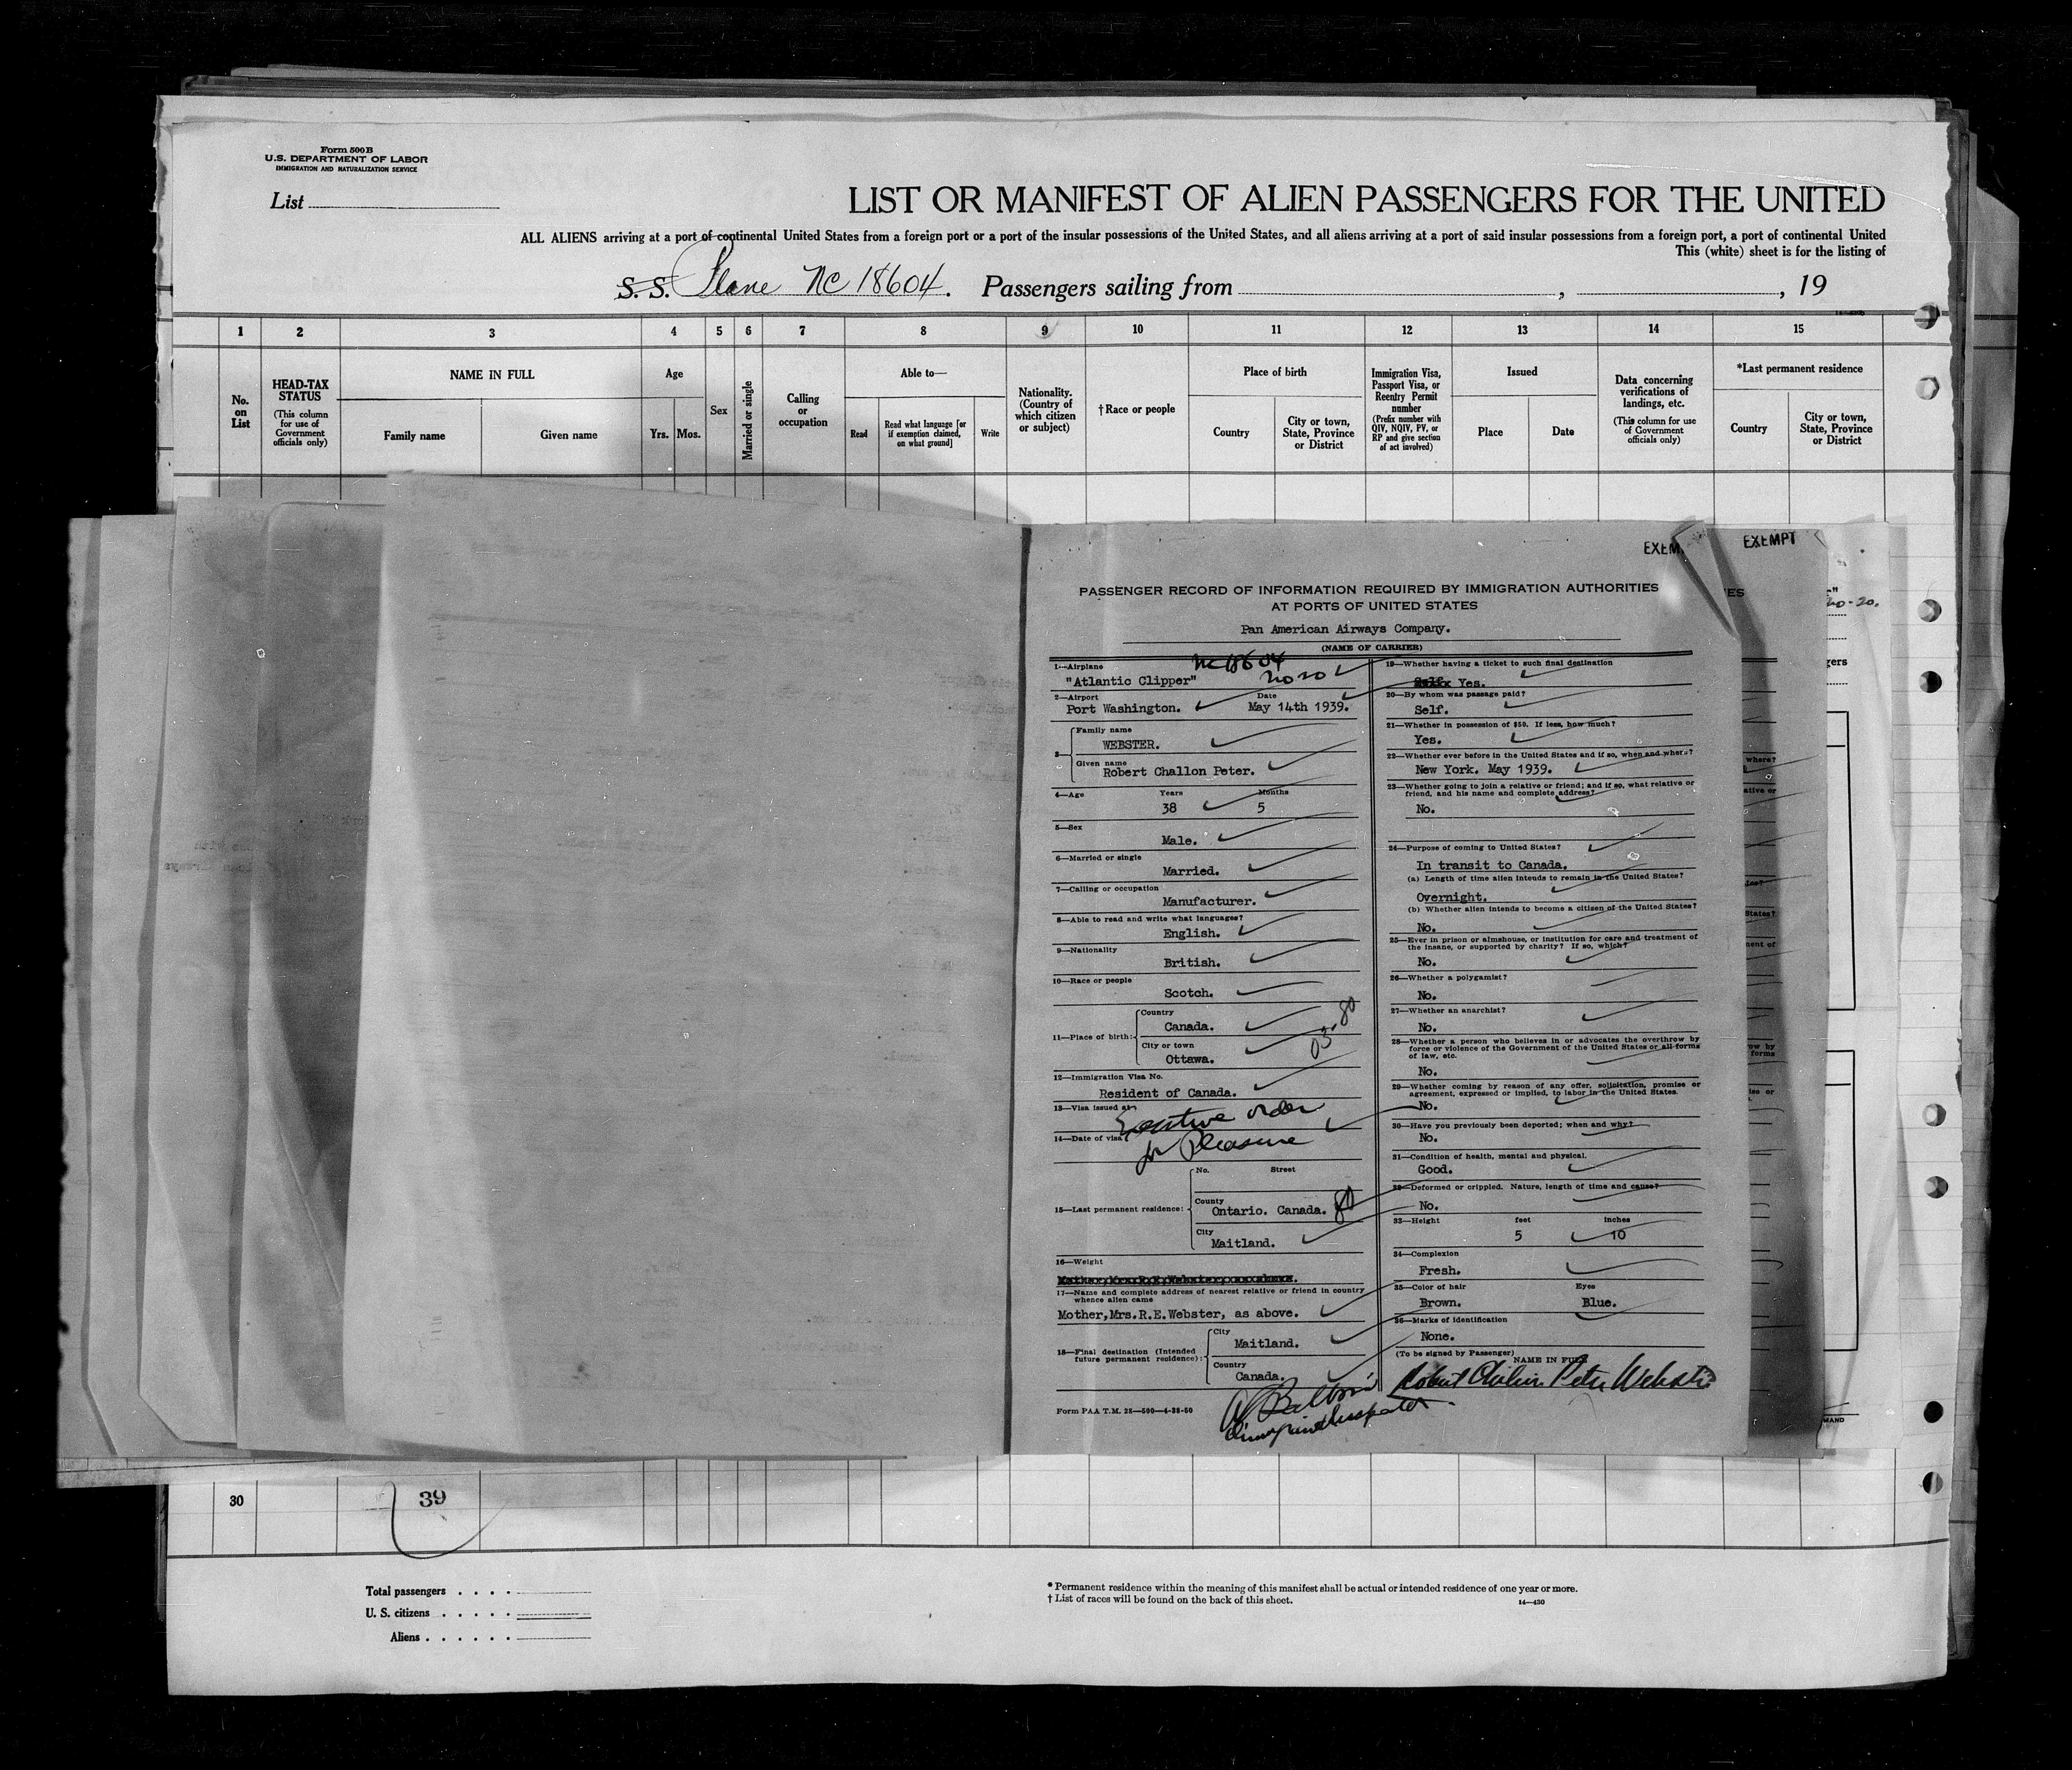 Form 500B
U.S. DEPARTMENT OF LABOR
IMMIGRATION AND NATURALIZATION SERVICE
List
LIST OR MANIFEST OF ALIEN PASSENGERS FOR THE UNITED
ALL ALIENS arriving at a port of continental United States from a foreign port or a port of the insular possessions of the United States, and all aliens arriving at a port of said insular possessions from a foreign port, a port of continental United
This (white) sheet is for the listing of
S. S. Plane NC 18604. Passengers sailing from , , 19
1 2 3 4 5 6 7 8 9 10 11 12 13 14 15
No. on List
HEAD-TAX STATUS
(This column for use of Government officials only)
NAME IN FULL
Family name
Given name
Age
Yrs. Mos.
Sex
Married or single
Calling or occupation
Able to—
Read
Read what language [or if exemption claimed, on what ground]
Write
Nationality. (Country of which citizen or subject)
†Race or people
Place of birth
Country
City or town, State, Province or District
Immigration Visa, Passport Visa, or Reentry Permit number
(Prefix number with QIV, NQIV, PV, or RP and give section of act involved)
Issued
Place
Date
Data concerning verifications of landings, etc.
(This column for use of Government officials only)
*Last permanent residence
Country
City or town, State, Province or District
EXEM
EXEMPT
PASSENGER RECORD OF INFORMATION REQUIRED BY IMMIGRATION AUTHORITIES
AT PORTS OF UNITED STATES
Pan American Airways Company.
(NAME OF CARRIER)
1—Airplane NC 18604
"Atlantic Clipper"
2—Airport Date
Port Washington. May 14th 1939.
3—
Family name
WEBSTER.
Given name
Robert Challon Peter.
4—Age Years Months
38 5
5—Sex
Male.
6—Married or single
Married.
7—Calling or occupation
Manufacturer.
8—Able to read and write what languages?
English.
9—Nationality
British.
10—Race or people
Scotch.
11—Place of birth:
Country
Canada. 80
City or town 03.
Ottawa.
12—Immigration Visa No.
Resident of Canada.
13—Visa issued at
Executive order
14—Date of visa
for Pleasure
No. Street
15—Last permanent residence:
County
Ontario. Canada. 80
City
Maitland.
16—Weight
17—Name and complete address of nearest relative or friend in country
whence alien came
Mother,Mrs.R.E.Webster, as above.
18—Final destination (Intended
future permanent residence):
City
Maitland.
Country
Canada.
Form PAA T.M. 28—500—4-38-50
19—Whether having a ticket to such final destination
Yes.
20—By whom was passage paid?
Self.
21—Whether in possession of $50. If less, how much?
Yes.
22—Whether ever before in the United States and if so, when and where?
New York. May 1939.
23—Whether going to join a relative or friend; and if so, what relative or
friend, and his name and complete address?
No.
24—Purpose of coming to United States?
In transit to Canada.
(a) Length of time alien intends to remain in the United States?
Overnight.
(b) Whether alien intends to become a citizen of the United States?
No.
25—Ever in prison or almshouse, or institution for care and treatment of
the insane, or supported by charity? If so, which?
No.
26—Whether a polygamist?
No.
27—Whether an anarchist?
No.
28—Whether a person who believes in or advocates the overthrow by
force or violence of the Government of the United States or all forms
of law, etc.
No.
29—Whether coming by reason of any offer, solicitation, promise or
agreement, expressed or implied, to labor in the United States.
No.
30—Have you previously been deported; when and why?
No.
31—Condition of health, mental and physical.
Good.
32—Deformed or crippled. Nature, length of time and cause?
No.
33—Height feet inches
5 10
34—Complexion
Fresh.
35—Color of hair Eyes
Brown. Blue.
36—Marks of identification
None.
(To be signed by Passenger)
NAME IN FULL
Robert Peter Webster
30 39
Total passengers
U. S. citizens
Aliens
* Permanent residence within the meaning of this manifest shall be actual or intended residence of one year or more.
† List of races will be found on the back of this sheet.
14—430